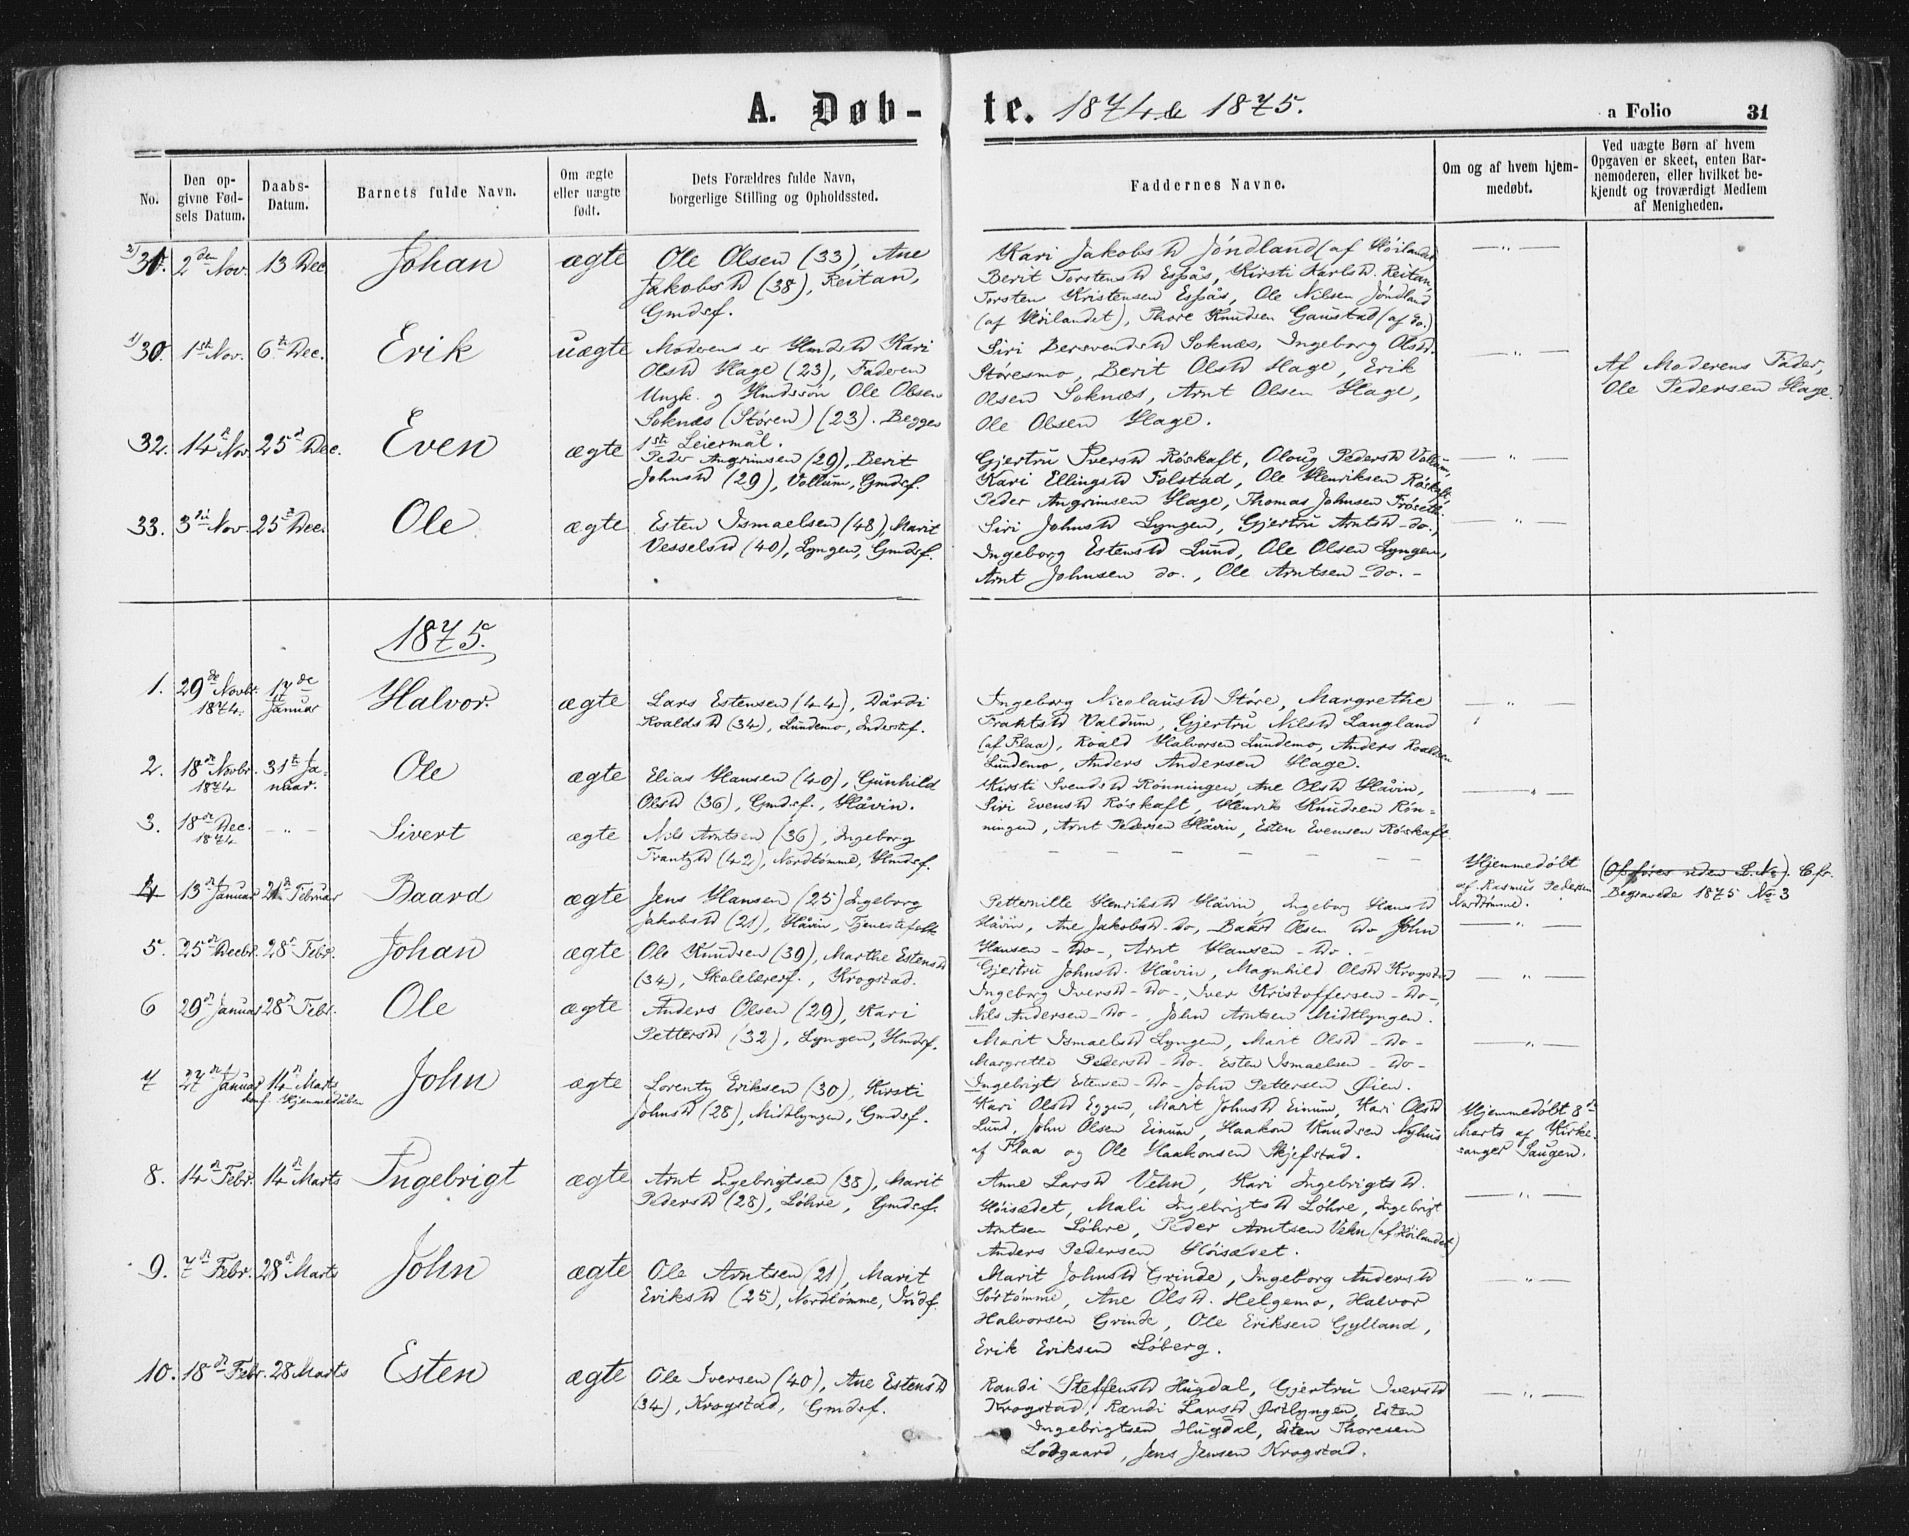 A. Døb-te. 1874 & 1875.
a Folio 31
No.
Den op-
givne Fød-
sels Datum.
Daabs-
Datum.
Barnets fulde Navn.
Om ægte
eller uægte
født.
Dets Forældres fulde Navn,
borgerlige Stilling og Opholdssted.
Faddernes Navne.
Om og af hvem hjem-
medøbt.
Ved uægte Børn af hvem
Opgaven er skeet, enten Bar-
nemoderen, eller hvilket be-
kjendt og troværdigt Medlem
af Menigheden.
2) 31. 2den Nov. 13 Dec. Johan ægte
Ole Olsen (33), Ane
Jakobsd (38), Reitan,
Gmdsf.
Kari Jakobsd Jöndland (af Höilandet
Berit Torstensd Espås, Kirsti Karlsd. Reitan,
Torsten Kristensen Espås, Ole Nilsen Jöndland
(af Höilandet), Thore Knudsen Gaustad (af do.)
— „ —
1) 30. 1ste Nov. 6te Dec. Erik uægte
Moderen er Hmdsd Kari
Olsd Hage (23), Faderen
Ungk. og Hmdssön Ole Olsen
Soknæs (Støren) (23). Begges
1ste Leiermål.
Siri Bersvendsd Soknæs, Ingeborg Olsd.
Støresmo, Berit Olsd Hage, Erik
Olsen Soknæs, Arnt Olsen Hage,
Ole Olsen Hage.
— „ —
Af Moderens Fader,
Ole Pedersen Hage.
32. 14de Nov. 25de Dec. Even ægte
Peder Angrimsen (29), Berit
Johnsd (29), Vollum, Gmdsf.
Gjertru Iversd Röskaft, Oloug Pedersd Vollum,
Kari Ellingsd Folstad, Ole Henriksen Röskaft,
Peder Angrimsen Hage, Thomas Johnsen Fröseth.
— „ —
33. 3die Nov. 25de Dec. Ole ægte
Esten Ismaelsen (48), Marit
Vesselsd (40), Lyngen, Gmdsf.
Siri Johnsd Lyngen, Gjertru Arntsd - do.,
Ingeborg Estensd Lund, Ole Olsen Lyngen,
Arnt Johnsen do., Ole Arntsen - do. -
— „ —
1875.
1. 29de Novbr. 1874. 17de Januar Halvor. ægte
Lars Estensen (44), Dårdi
Roaldsd (34), Lundemo, Inderstf.
Ingeborg Nicolausd Støre, Margrethe
Fraktsd Valdum, Gjertru Nilsd Langland
(af Flaa), Roald Halvorsen Lundemo, Anders Roaldsen
Lundemo, Anders Andersen Hage.
— „ —
2. 18de Novbr. 1874 31te Ja-
nuar. Ole ægte
Elias Hansen (40), Gunhild
Olsd (36), Gmdsf., Håvin.
Kirsti Svendsd Rönningen, Ane Olsd Håvin,
Siri Evensd Röskaft, Henrik Knudsen Rön-
ningen, Arnt Pedersen Håvin, Esten Evensen Röskaft.
— „ —
3. 18de Dec. 1874 - „ - Sivert ægte
Nils Arntsen (36), Ingeborg
Frantzsd (42), Nordtömme, Hmdsf.
— — — — — — —
Hjemmedöbt
af Rasmus Pedersen
Nordtömme.
(Opföres uden L. No). Cfr.
Begravede 1875 No 3
4 13de Januar 21de Februar Baard ægte
Jens Hansen (25) Ingeborg
Jakobsd (21), Håvin, Tjenestefolk
Petternille Henriksd Håvin, Ingeborg Hansd
Håvin, Ane Jakobsd - Do, Baard Olsen Do John
Hansen - Do -, Arnt Hansen - Do. -
— „ —
5. 25de Decbr. 28de Febr. Johan ægte
Ole Knudsen (39), Marthe Estensd
(34), Skolelærerf., Krogstad.
Gjertru Johnsd. Håvin, Magnhild Olsd Krogstad
Ingeborg Iversd - Do -, Iver Kristoffersen - Do -,
Nils Andersen - Do -, John Arntsen Midtlyngen.
— „ —
6 29de Januar 28de Febr. Ole ægte
Anders Olsen (29), Kari
Pettersd (32), Lyngen, Hmdsf.
Marit Ismaelsd Lyngen, Marit Olsd - Do -
Margrethe Pedersd - Do - Esten Ismaelsen - Do -
Ingebrigt Estensen - Do - John Pettersen Øien.
— „ —
7 27de Januar 14de Marts John ægte
Lorentz Eriksen (30), Kirsti
Johnsd (28), Midtlyngen, Gmdsf.
Kari Olsd Eggen, Marit Johnsd Einum, Kari Olsd
Lund, John Olsen Einum, Haakon Knudsen Nyhus
af Flaa og Ole Haakonsen Skjefstad.
Hjemmedöbt 8de
Marts af Kirke-
sanger Saugen.
8. 14de Febr. 14de Marts Ingebrigt ægte
Arnt Ingebrigtsen (38), Marit
Pedersd (28), Løhre, Gmdsf.
Anne Larsd Vehn, Kari Ingebrigtsd.
Höisædet, Mali Ingebrigtsd Løhre, Ingebrigt
Arntsen Løhre, Peder Arntsen Vehn (af Höilandet)
Anders Pedersen Höisædet.
— „ —
9. 7de Febr. 28de Marts John ægte
Ole Arntsen (21), Marit
Eriksd (25), Nordtömme, Indf.
Marit Johnsd Grinde, Ingeborg Andersd
Sörtömme, Ane Olsd. Helgemo, Halvor
Halvorsen Grinde, Ole Eriksen Gylland,
Erik Eriksen Løberg.
— „ —
10. 18de Febr. 28 Marts Esten ægte
Ole Iversen (40), Ane Estensd
(34), Krogstad, Gmdsf.
Randi Steffensd Hugdal, Gjertru Iversd
Krogstad, Randi Larsd Østlyngen, Esten
Ingebrigtsen Hugdal, Esten Thoresen
Lodgaard, Jens Jensen Krogstad.
— „ —